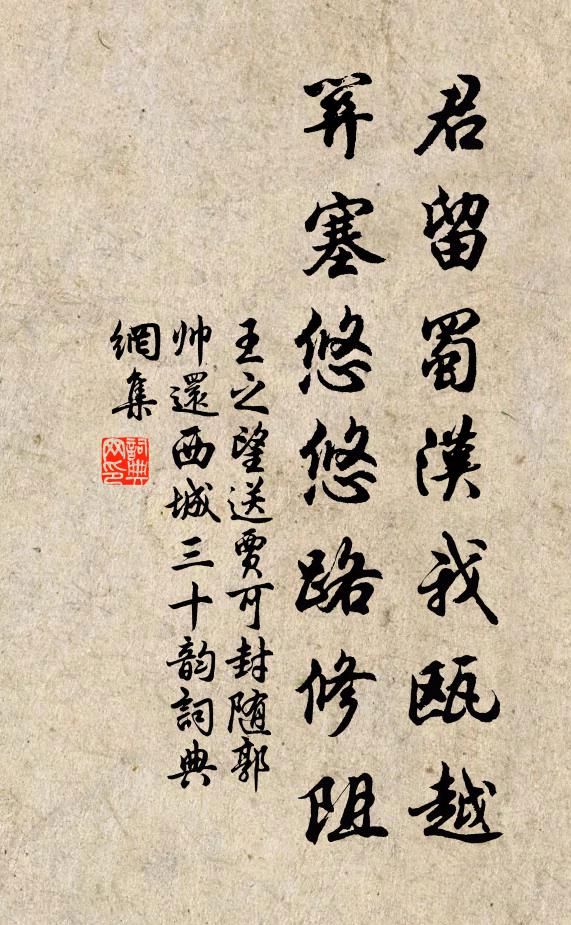 君留蜀漢我甌越
笄塞悠悠路修阻
王之望送賈可封随郭
帅還西城三十韵詞典
網集
詞典
网印